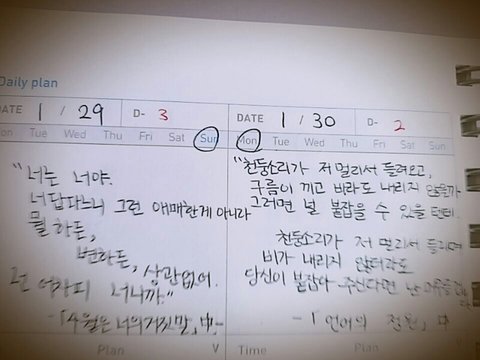 Daily plan
DATE 1 / 29 D- 3
Mon Tue Wed Thu Fri Sat Sun
"너는 너야.
너답다느니 그런 애매한게 아니라
뭘 하든,
변하든, 상관없어.
넌 어차피 너니까."
-「4월은 너의 거짓말」中-
Plan V
DATE 1 / 30 D- 2
Mon Tue Wed Thu Fri Sat
"천둥소리가 저 멀리서 들려오고,
구름이 끼고 비라도 내리지 않을까
그러면 널 붙잡을 수 있을 텐데.
천둥소리가 저 멀리서 들리며
비가 내리지 않더라도
당신이 붙잡아 주신다면 난
-「언어의 정원」中
Time Plan V